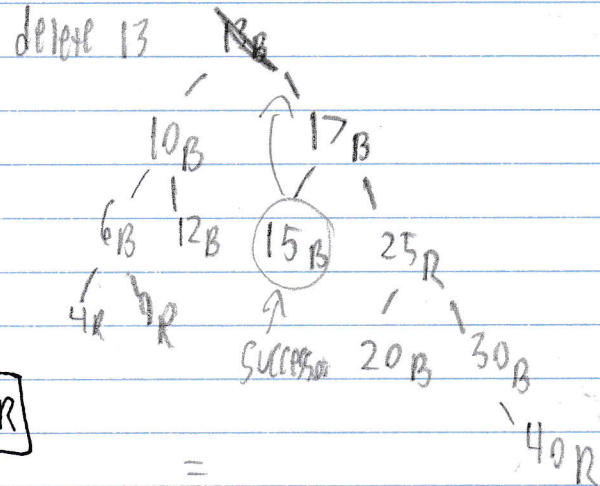 delete 13 13B
10B 17B
6B 12B 15B 25R
4R R
successor 20B 30B
R
40R
=